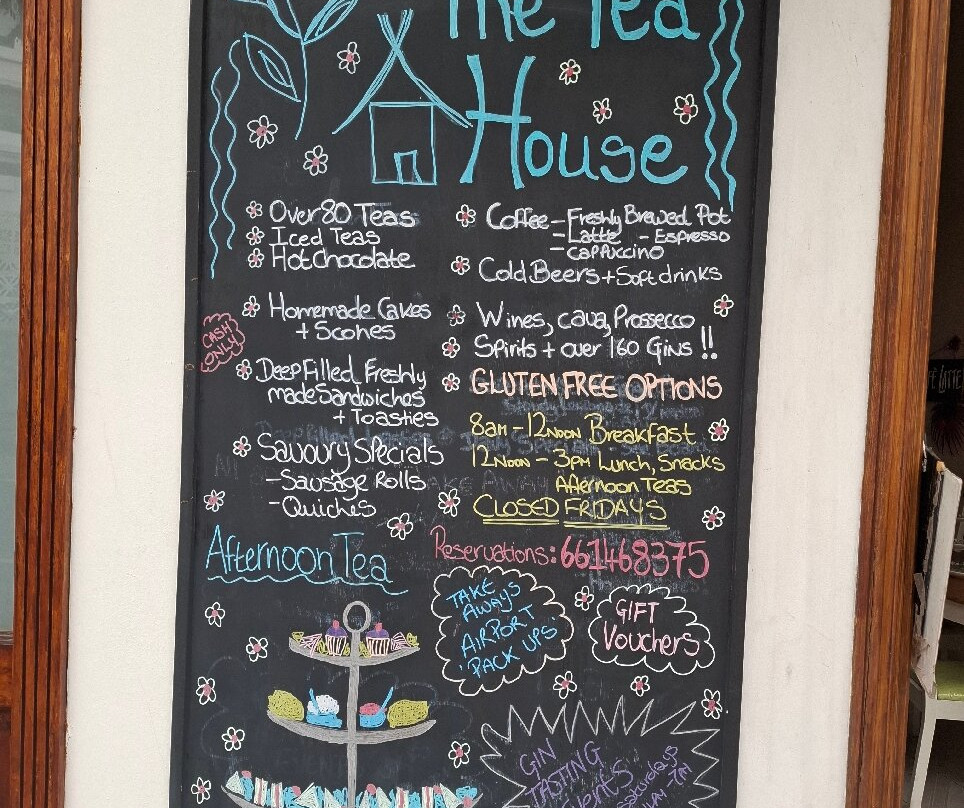 The Tea
House
Over 80 Teas
Iced Teas
Hot Chocolate
Homemade Cakes
+ Scones
CASH
ONLY!
Deep Filled, Freshly
made Sandwiches
+ Toasties
Savoury Specials
- Sausage Rolls
- Quiches
Coffee - Freshly Brewed Pot
- Latte - Espresso
- Cappuccino
Cold Beers + Soft drinks
Wines, cava, Prossecco
Spirits + over 160 Gins !!
GLUTEN FREE OPTIONS
8am - 12 NOON Breakfast
12 NOON - 3pm Lunch, Snacks
Afternoon Teas
CLOSED FRIDAYS
Reservations: 661468375
Afternoon Tea
TAKE
AWAYS
AIRPORT
'PACK UPS'
GIFT
Vouchers
GIN
TASTING
Events
Saturdays
LATTE